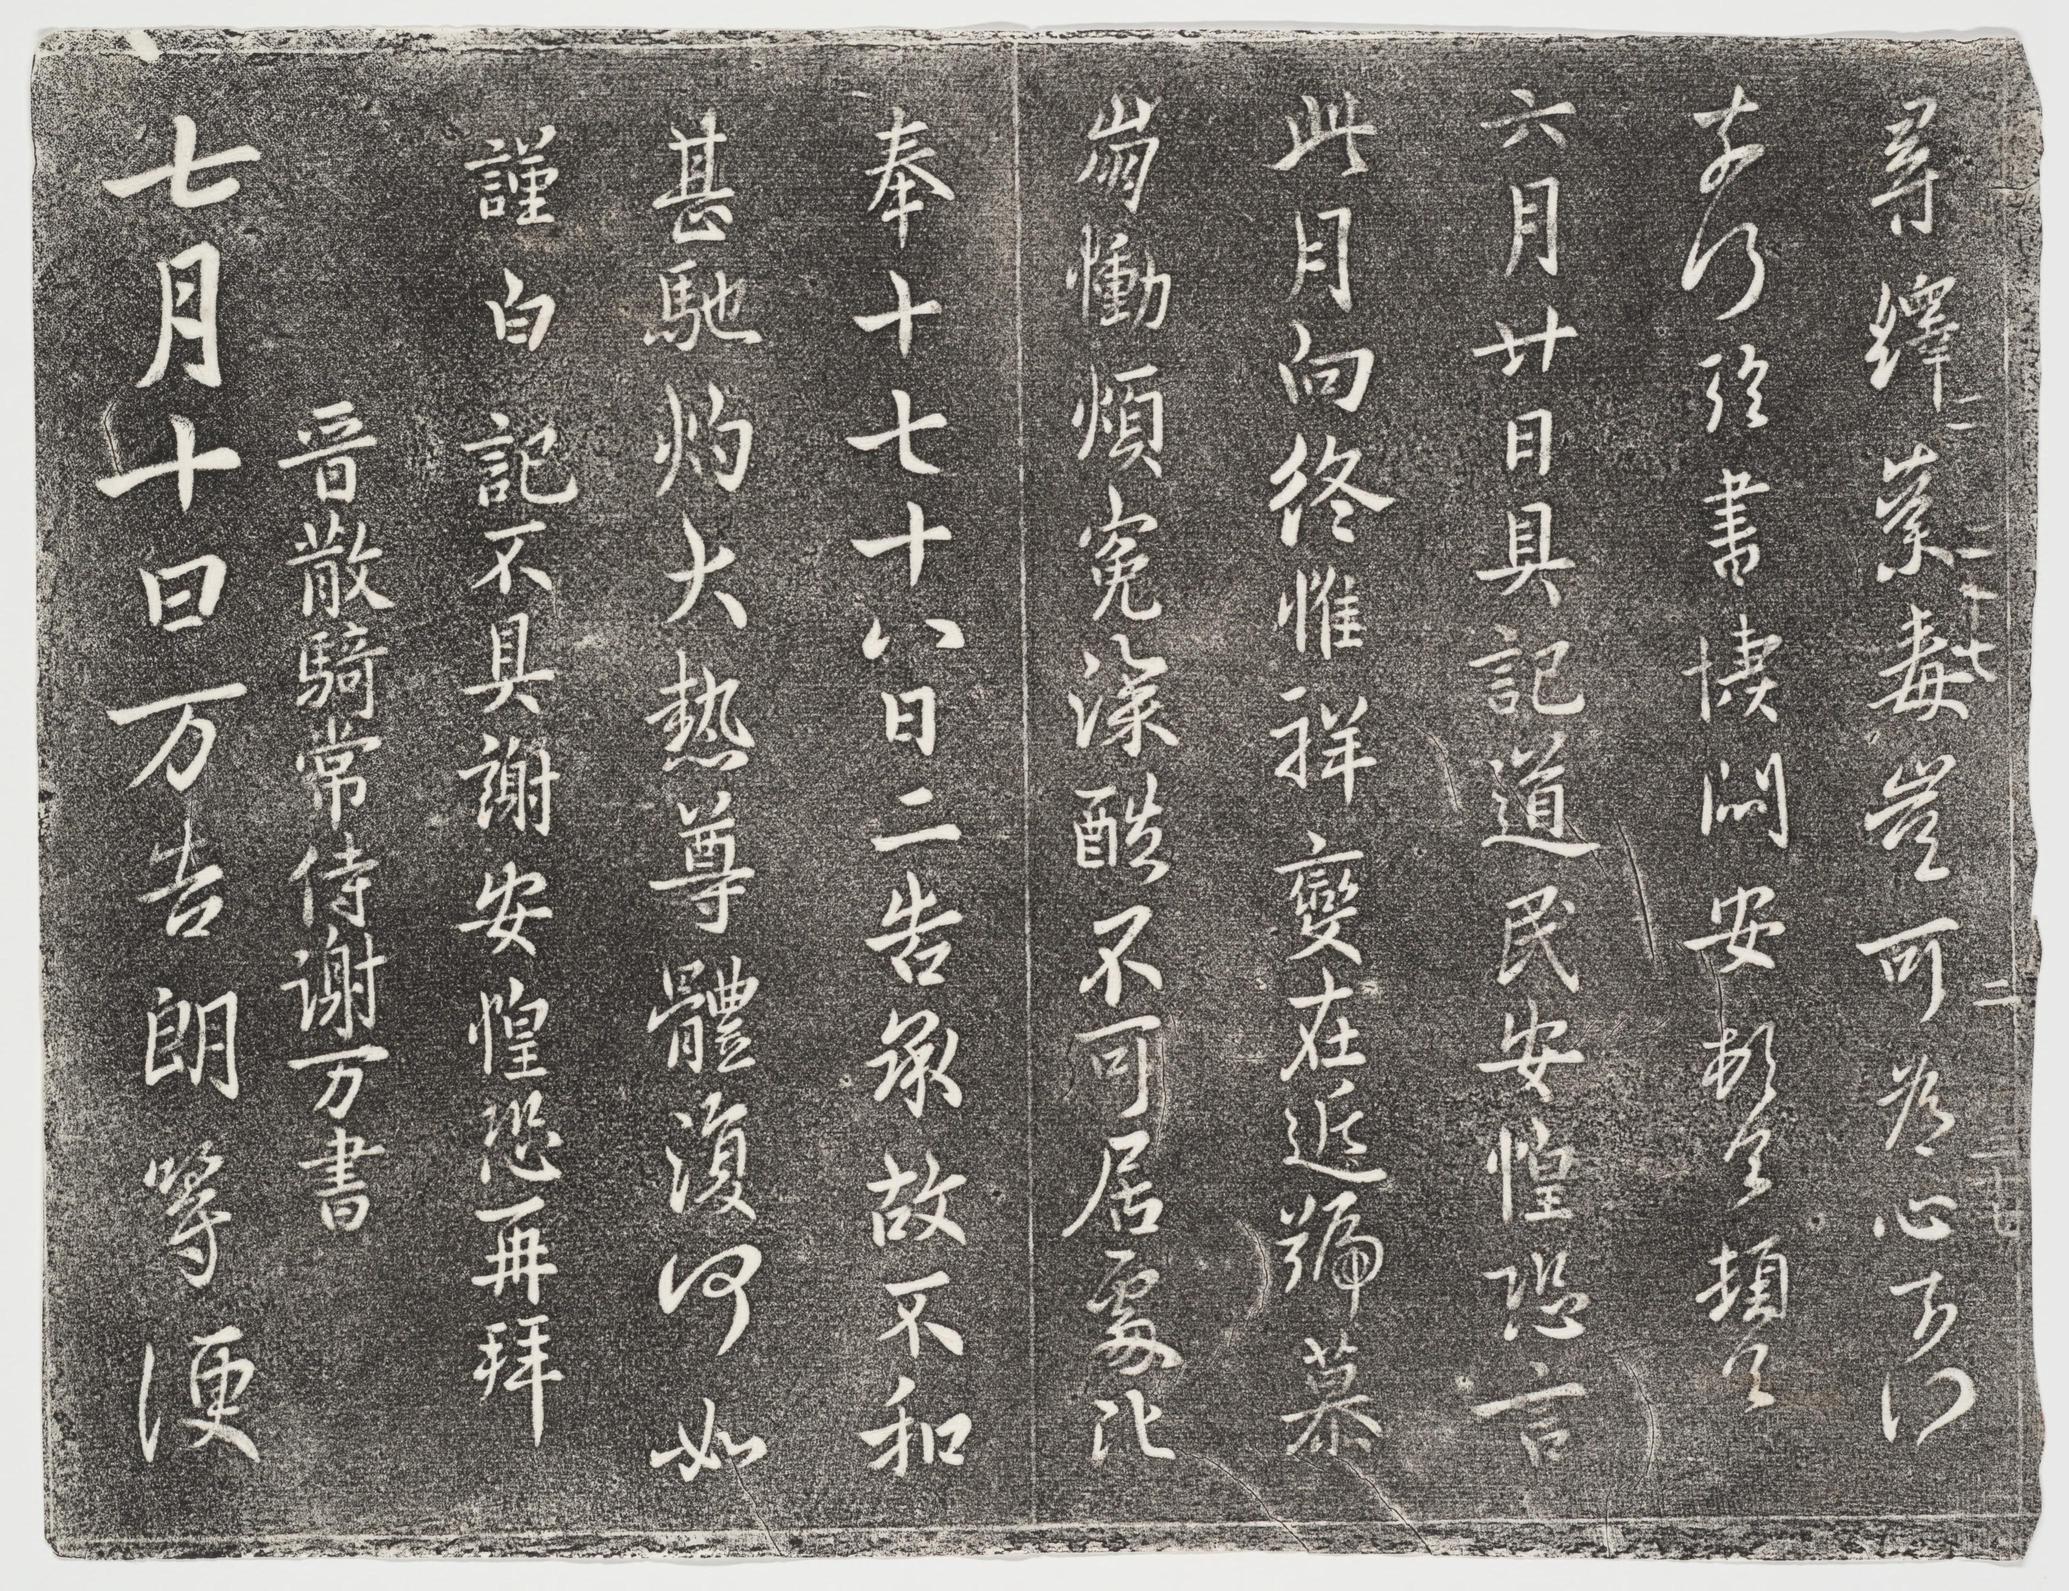 尋繹荼毒豈可為心奈何
奈何臨書悽悶安頓首頓首
六月廿日具記道民安惶恐言
此月向終惟祥變在近號慕
崩慟煩冤深酷不可居處比
奉十七十八日二告承故不和
甚馳灼大熱尊體復何如
謹白記不具謝安惶恐再拜
晉散騎常侍謝万書
七月十日万告朗等便